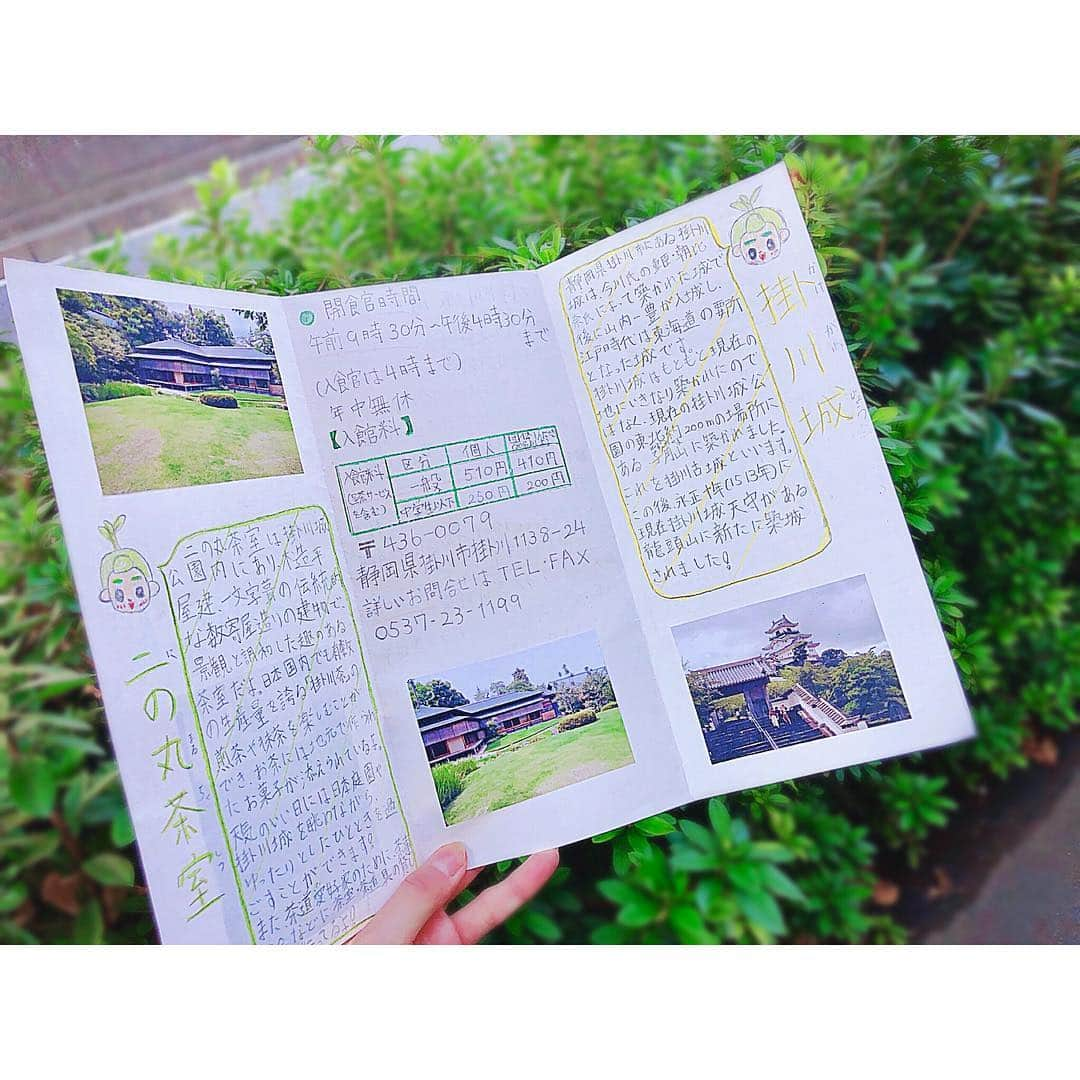 掛川城
かけ がわ じょう
静岡県掛川市にある掛川
城は、今川氏の重臣・朝比
奈氏によって築かれた城で
後に山内一豊が入城し、
江戸時代は東海道の要所
となった城です。
掛川城はもともと現在の
地にいきなり築かれたので
はなく、現在の掛川城公
園の東北約200mの場所に
ある山に築かれました。
これを掛川古城といいます。
この後、永正十年(1513年)に
現在掛川城天守がある
龍頭山に新たに築城
されました!
開館時間
午前9時30分～午後4時30分
まで
(入館は4時まで)
年中無休
【入館料】
入館料 区分 個人
一般 510円 410円
中学生以下 250円 200円
〒436-0079
静岡県掛川市掛川1138-24
詳しいお問合せは TEL・FAX
0537-23-1199
二の丸茶室
に まる ちゃ しつ
二の丸茶室は掛川城
公園内にあり、木造平
屋建、数寄の伝統的
な数寄屋造りの建物で、
景観と調和した趣のある
茶室だよ。日本国内でも有数
の生産量を誇る「掛川茶」の
煎茶や抹茶を楽しむことが
でき、お茶には地元で作られ
たお菓子が添えられているよ。
天気のいい日には日本庭園や
掛川城を眺めながら、
ゆったりとしたひとときを過
ごすことができます?
また、茶道愛好家のために、茶